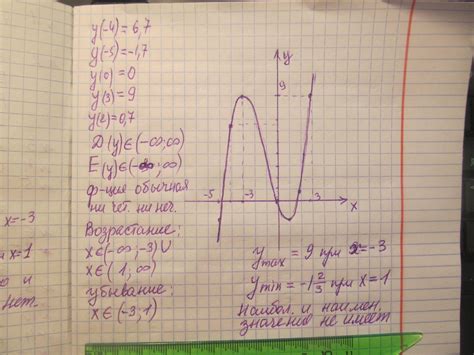 y(-4)=6,7
y(-5)=-1,7
y(0)=0
y(3)=9
y(2)=0,7
D(y)∈(-∞;∞)
E(y)∈(-∞;∞)
ф-ция обычная
ни чет. ни неч.
Возрастание:
x∈(-∞;-3)∪
x∈(1;∞)
убывание:
x∈(-3;1)
y
9
-5
-3
3
x
y max = 9 при x=-3
y min = -1 2/3 при x=1
Наибол. и наимен.
значение не имеет
x=-3
x=1
и
нет.